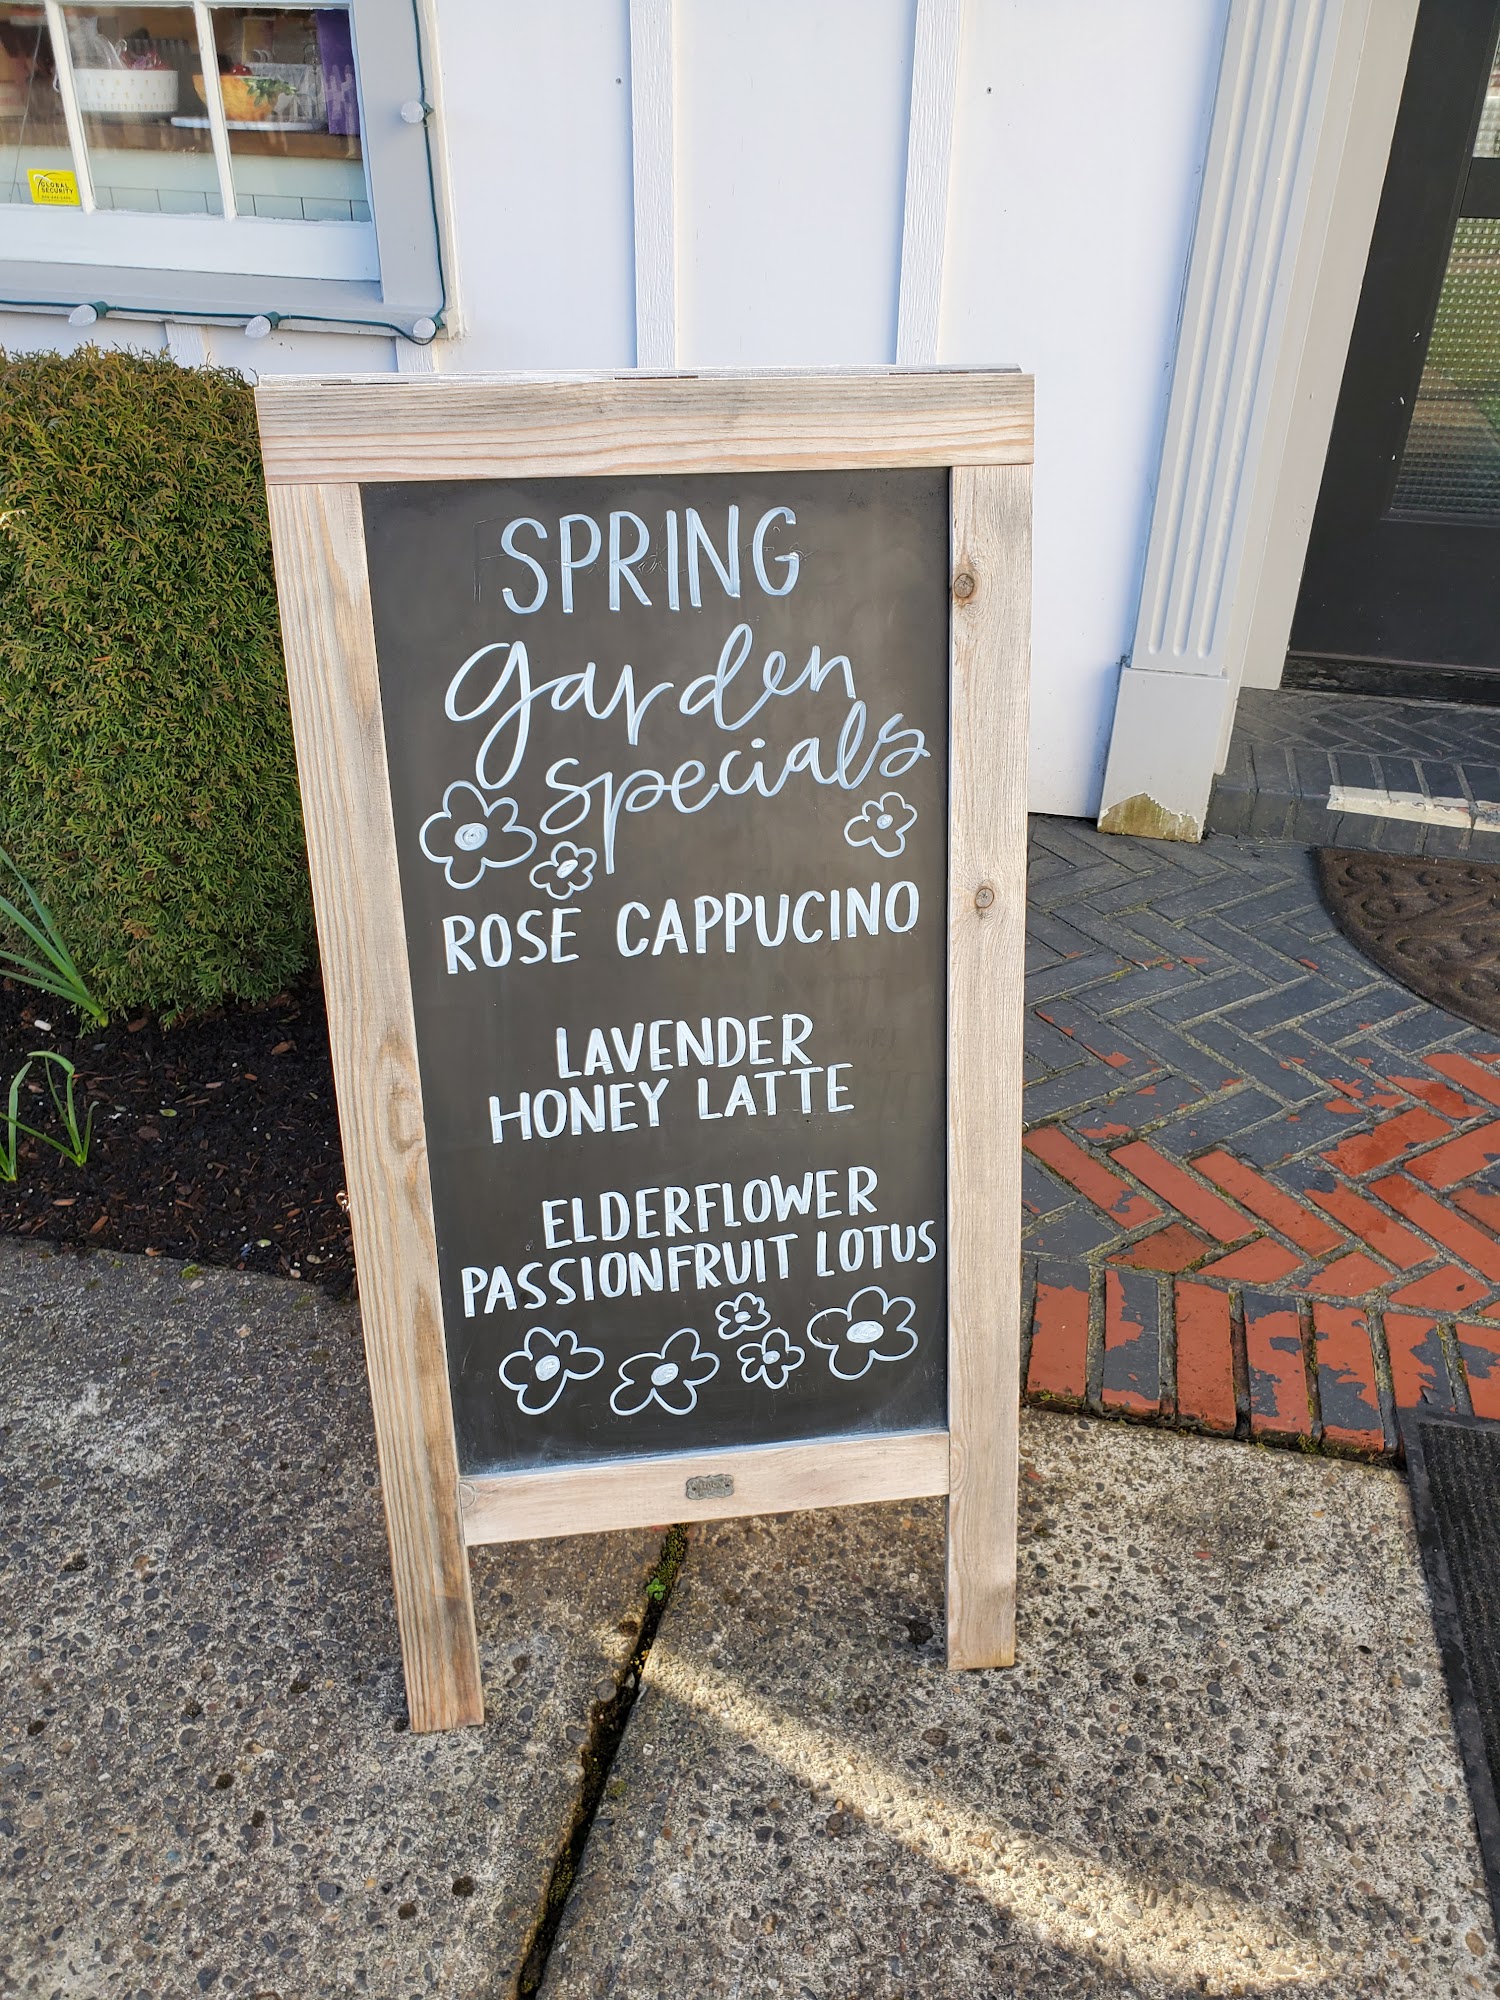 SPRING
garden
specials
ROSE CAPPUCINO
LAVENDER
HONEY LATTE
ELDERFLOWER
PASSIONFRUIT LOTUS
GLOBAL
SECURITY